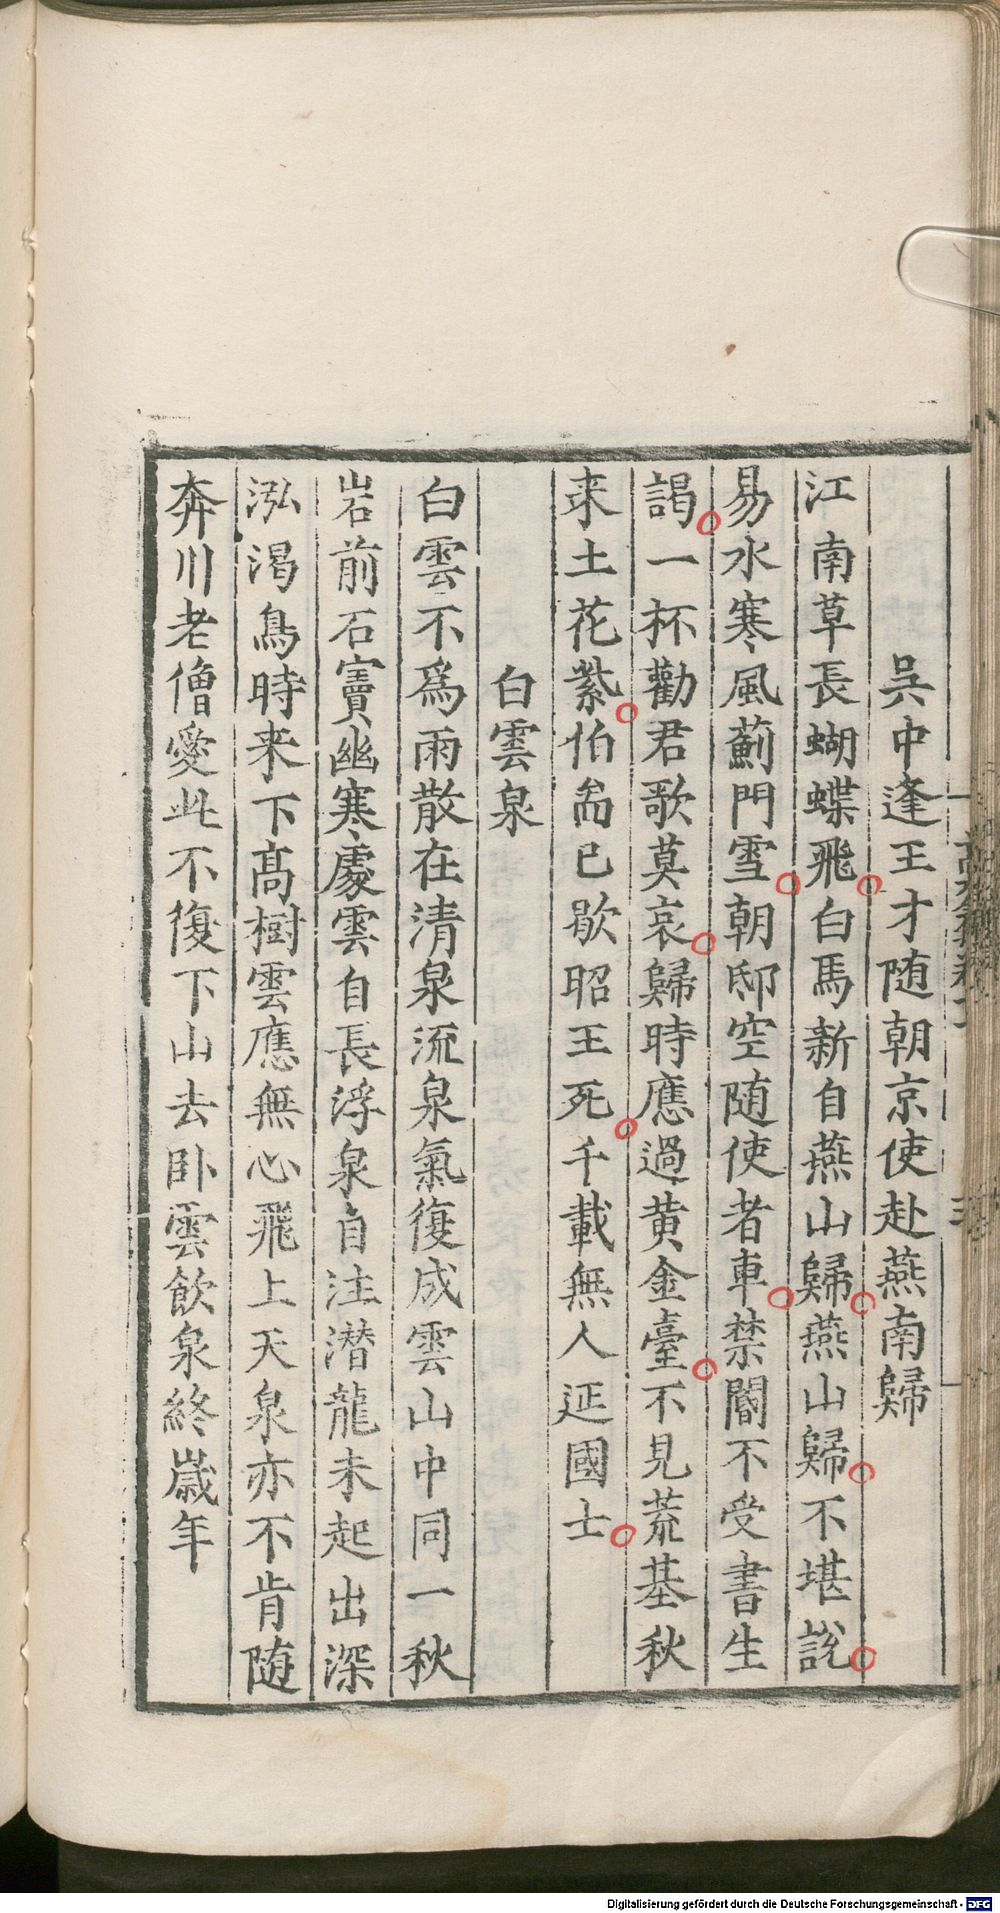 吳中逢王才随朝京使赴燕南歸
江南草長蝴蝶飛白馬新自燕山歸燕山歸不堪說
易水寒風薊門雪朝邸空随使者車禁闈不受書生
謁一杯勸君歌莫哀歸時應過黄金臺不見荒基秋
来土花紫伯啚已歇昭王死千載無人延國士
白雲泉
白雲不爲雨散在清泉流泉氣復成雲山中同一秋
岩前石竇幽寒處雲自長浮泉自注潜龍未起出深
泓渴鳥時来下高樹雲應無心飛上天泉亦不肯随
奔川老僧愛此不復下山去卧雲飲泉終歲年
Digitalisierung gefördert durch die Deutsche Forschungsgemeinschaft - DFG